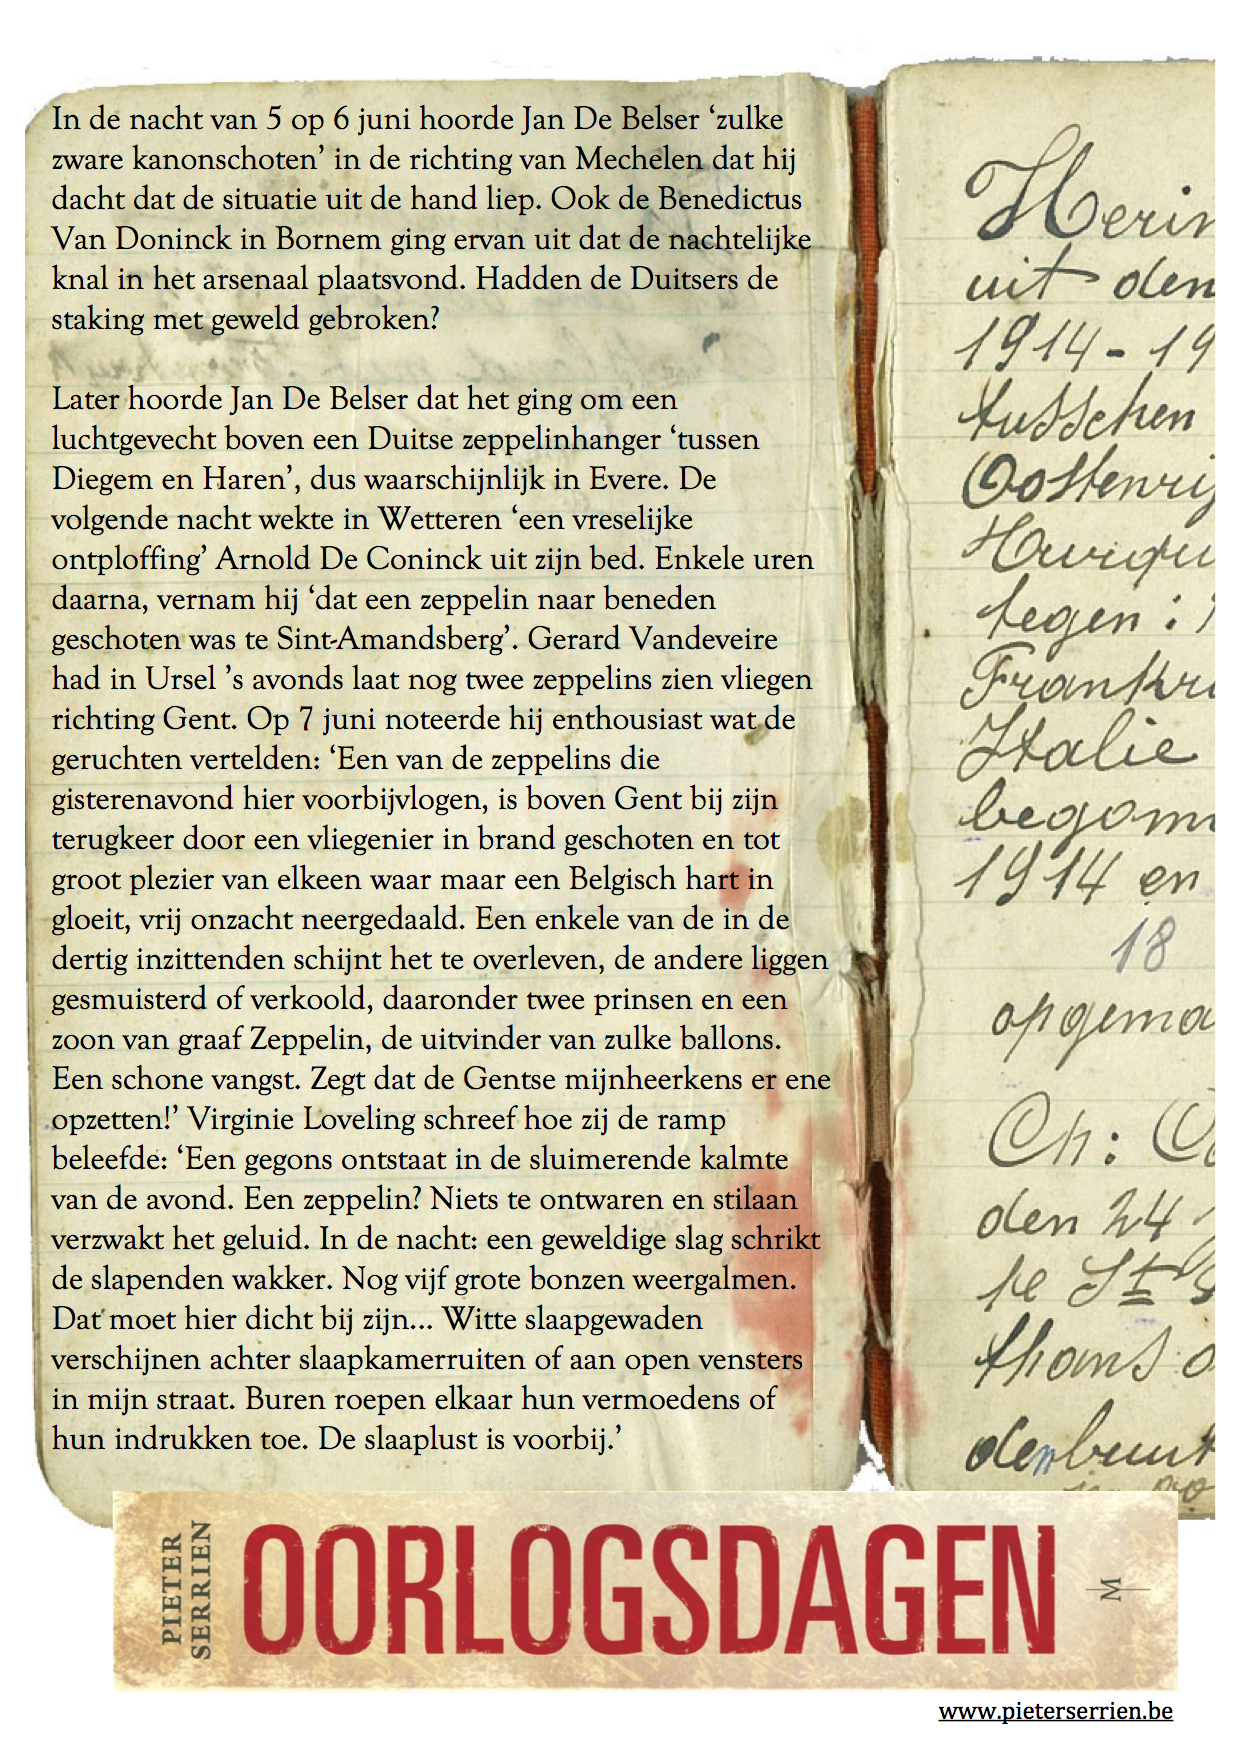 In de nacht van 5 op 6 juni hoorde Jan De Belser ‘zulke
zware kanonschoten’ in de richting van Mechelen dat hij
dacht dat de situatie uit de hand liep. Ook de Benedictus
Van Doninck in Bornem ging ervan uit dat de nachtelijke
knal in het arsenaal plaatsvond. Hadden de Duitsers de
staking met geweld gebroken?
Later hoorde Jan De Belser dat het ging om een
luchtgevecht boven een Duitse zeppelinhanger ‘tussen
Diegem en Haren’, dus waarschijnlijk in Evere. De
volgende nacht wekte in Wetteren ‘een vreselijke
ontploffing’ Arnold De Coninck uit zijn bed. Enkele uren
daarna, vernam hij ‘dat een zeppelin naar beneden
geschoten was te Sint-Amandsberg’. Gerard Vandeveire
had in Ursel ’s avonds laat nog twee zeppelins zien vliegen
richting Gent. Op 7 juni noteerde hij enthousiast wat de
geruchten vertelden: ‘Een van de zeppelins die
gisterenavond hier voorbijvlogen, is boven Gent bij zijn
terugkeer door een vliegenier in brand geschoten en tot
groot plezier van elkeen waar maar een Belgisch hart in
gloeit, vrij onzacht neergedaald. Een enkele van de in de
dertig inzittenden schijnt het te overleven, de andere liggen
gesmuisterd of verkoold, daaronder twee prinsen en een
zoon van graaf Zeppelin, de uitvinder van zulke ballons.
Een schone vangst. Zegt dat de Gentse mijnheerkens er ene
opzetten!’ Virginie Loveling schreef hoe zij de ramp
beleefde: ‘Een gegons ontstaat in de sluimerende kalmte
van de avond. Een zeppelin? Niets te ontwaren en stilaan
verzwakt het geluid. In de nacht: een geweldige slag schrikt
de slapenden wakker. Nog vijf grote bonzen weergalmen.
Dat moet hier dicht bij zijn... Witte slaapgewaden
verschijnen achter slaapkamerruiten of aan open vensters
in mijn straat. Buren roepen elkaar hun vermoedens of
hun indrukken toe. De slaaplust is voorbij.’
Herin
uit den
1914-19
tusschen
Oostenrij
tegen :
Frankri
Italie
begonn
1914 en
18
opgema
Ch:
den 24
te St
thans
PIETER
SERRIEN
OORLOGSDAGEN
M
www.pieterserrien.be